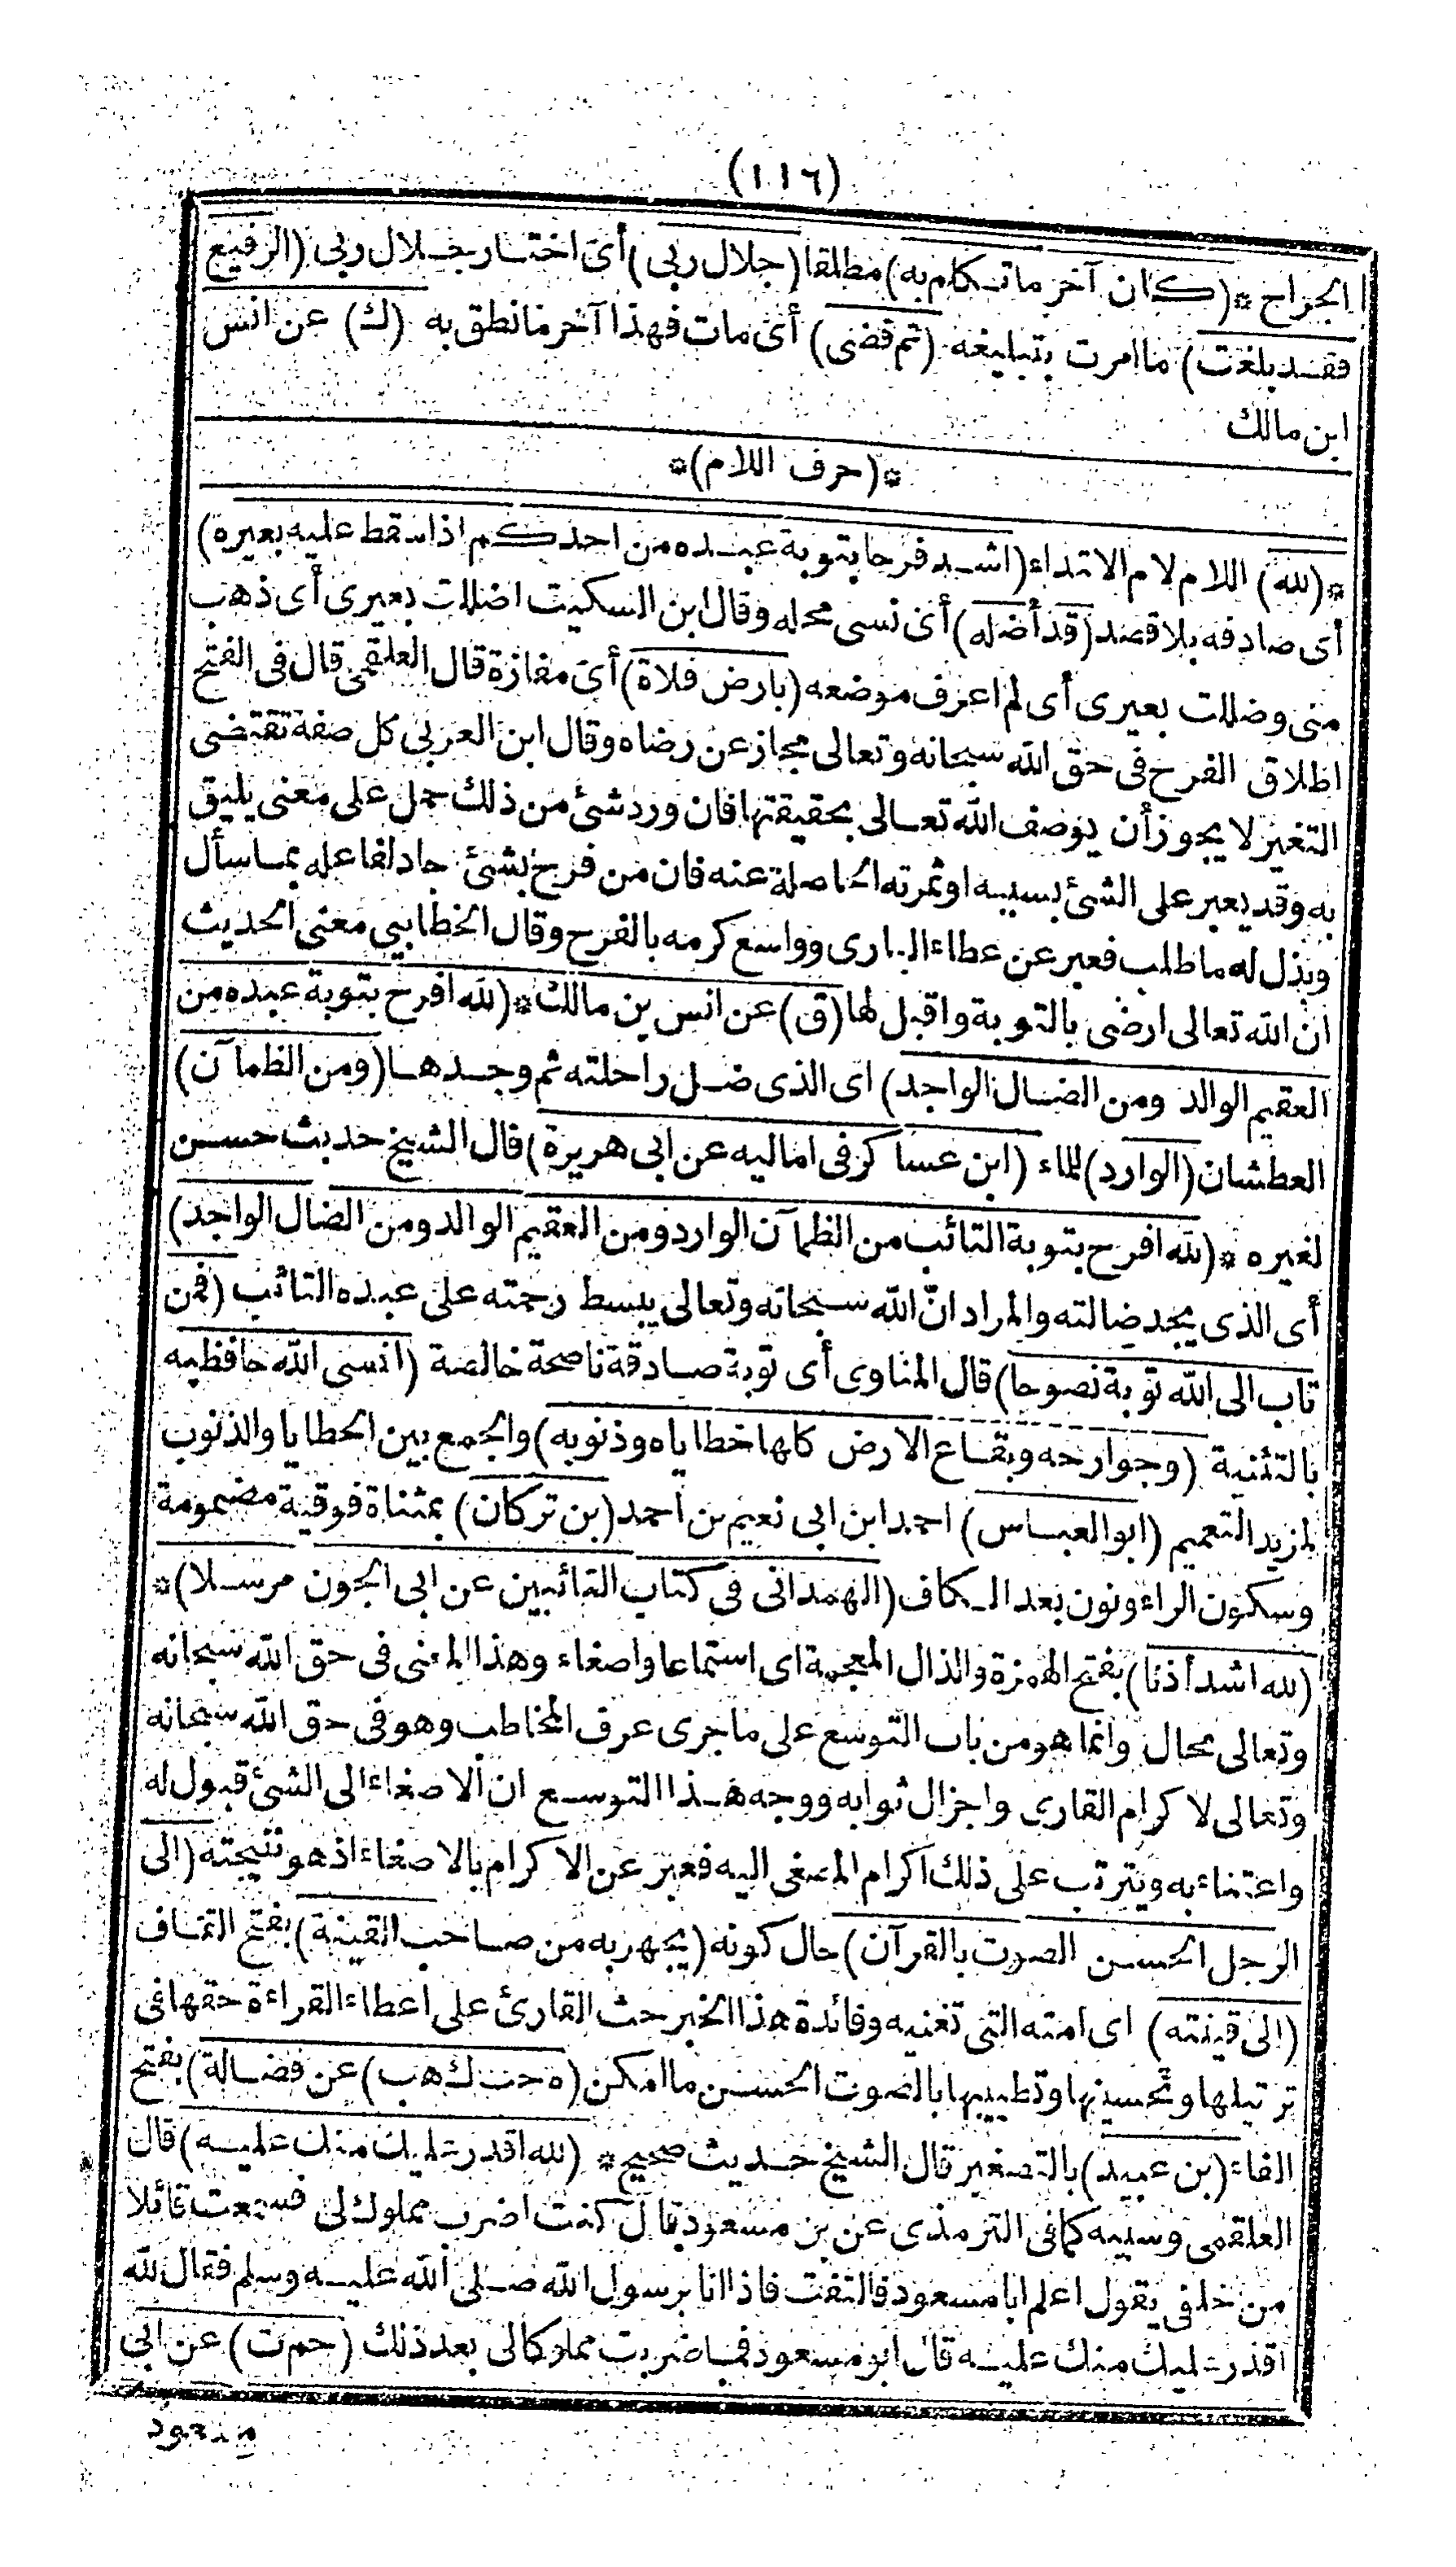 (١١٦)
الجراح *(كان آخر ما تكلم به) مطلقا (جلال ربي) أى اختار جلال ربى (الرفيع
فقد بلغت) ما امرت بتبليغه (ثم قضى) أى مات فهذا آخر ما نطق به (ك) عن انس
ابن مالك
*(حرف اللام)*
*(لله) اللام لام الابتداء (اشد فرحا بتوبة عبده من احدكم اذا سقط عليه بعيره)
أى صادفه بلا قصد (قد أضله) أى نسى محله وقال ابن السكيت اضللت بعيرى أى ذهب
منى وضللت بعيرى أى لم اعرف موضعه (بارض فلاة) أى مفازة قال العلقمى قال فى الفتح
اطلاق الفرح فى حق الله سبحانه وتعالى مجاز عن رضاه وقال ابن العربى كل صفة تقتضى
التغير لا يجوز أن يوصف الله تعالى بحقيقتها فان ورد شئ من ذلك حمل على معنى يليق
به وقد يعبر على الشئ بسببه او ثمرته الحاصلة عنه فان من فرح بشئ جاد لفاعله بما سأل
وبذل له ما طلب فعبر عن عطاء البارى وواسع كرمه بالفرح وقال الخطابى معنى الحديث
ان الله تعالى ارضى بالتوبة واقبل لها (ق) عن انس بن مالك *(لله افرح بتوبة عبده من
العقيم الوالد ومن الضال الواجد) اى الذى ضل راحلته ثم وجدها (ومن الظمآن)
العطشان (الوارد) للماء (ابن عساكر فى اماليه عن ابى هريرة) قال الشيخ حديث حسن
لغيره *(لله افرح بتوبة التائب من الظمآن الوارد ومن العقيم الوالد ومن الضال الواجد)
أى الذى يجد ضالته والمراد انّ الله سبحانه وتعالى يبسط رحمته على عبده التائب (فمن
تاب الى الله توبة نصوحا) قال المناوى أى توبة صادقة ناصحة خالصة (انسى الله حافظيه
بالتثنية (وجوارحه وبقاع الارض كلها خطاياه وذنوبه) والجمع بين الخطايا والذنوب
لمزيد التعميم (ابو العباس) احمد ابن ابى نعيم بن احمد (بن تركان) بمثناة فوقية مضمومة
وسكون الراء ونون بعد الكاف (الهمدانى فى كتاب التائبين عن ابى الجون مرسلا)*
(لله اشد أذنا) بفتح الهمزة والذال المعجمة اى استماعا واصغاء وهذا المعنى فى حق الله سبحانه
وتعالى محال وانما هو من باب التوسع على ما جرى عرف المخاطب وهو فى حق الله سبحانه
وتعالى لا كرام القارى واجزال ثوابه ووجه هذا التوسع ان الاصغاء الى الشئ قبول له
واعتناء به ويترتب على ذلك اكرام المصغى اليه فعبر عن الاكرام بالاصغاء اذ هو نتيجته (الى
الرجل الحسن الصوت بالقرآن) حال كونه (يجهر به من صاحب القينة) بفتح القاف
(الى قينته) اى امته التى تغنيه وفائدة هذا الخبر حث القارئ على اعطاء القراءة حقها فى
ترتيلها وتحسينها وتطييبها بالصوت الحسن ما امكن (ه حب ك هب) عن فضالة) بفتح
الفاء (بن عبيد) بالتصغير قال الشيخ حديث صحيح* (لله اقدر عليك منك عليه) قال
العلقمى وسببه كما فى الترمذى عن بن مسعود قال كنت اضرب مملوك لى فسمعت قائلا
من خلفى يقول اعلم ابا مسعود فالتفت فاذا انا برسول الله صلى الله عليه وسلم فقال لله
اقدر عليك منك عليه قال ابو مسعود فما ضربت مملوكا لى بعد ذلك (حم ت) عن ابى
مسعود